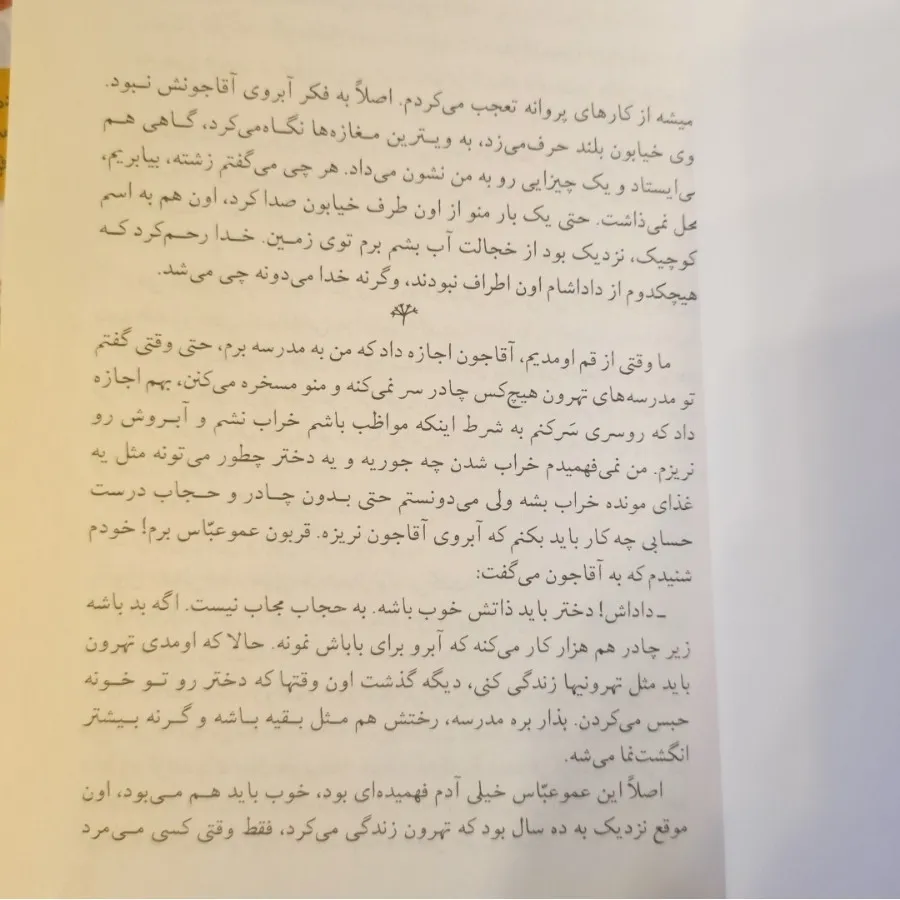 میشه از کارهای پروانه تعجب می‌کردم. اصلاً به فکر آبروی آقاجونش نـبود.
وی خیابون بلند حرف‌می‌زد، به ویـترین مـغازه‌ها نگـاه‌می‌کرد، گـاهی هـم
ی‌ایستاد و یک چیزایی رو به من نشون می‌داد. هر چی می‌گفتم زشته، بیابریم،
محل نمی‌ذاشت. حتی یک بار منو از اون طرف خیابون صدا کرد، اون هم به اسم
کوچیک، نزدیک بود از خجالت آب بشم برم توی زمـین. خـدا رحـم‌کرد کـه
هیچکدوم از داداشام اون اطراف نبودند، وگرنه خدا می‌دونه چی می‌شد.
ما وقتی از قم اومدیم، آقاجون اجازه داد که من به مدرسه برم، حتی وقتی گفتم
تو مدرسه‌های تهرون هیچ‌کس چادر سر نمی‌کنه و منو مسخره می‌کنن، بهم اجازه
داد که روسری سَرکنم به شرط اینکه مواظب باشم خراب نشم و آبـروش رو
نریزم. من نمی‌فهمیدم خراب شدن چه جوریه و یه دختر چطور می‌تونه مثل یه
غذای مونده خراب بشه ولی می‌دونستم حتی بـدون چـادر و حـجاب درست
حسابی چه کار باید بکنم که آبروی آقاجون نریزه. قربون عموعبّاس برم! خودم
شنیدم که به آقاجون می‌گفت:
ـ داداش! دختر باید ذاتش خوب باشه. به حجاب مجاب نیست. اگه بد باشه
زیر چادر هم هزار کار می‌کنه که آبرو برای باباش نمونه. حالا که اومدی تهرون
باید مثل تهرونیها زندگی کنی، دیگه گذشت اون وقتها که دختر رو تـو خـونه
حبس می‌کردن. بذار بره مدرسه، رختش هم مـثل بـقیه بـاشه و گـرنه بـیشتر
انگشت‌نما می‌شه.
اصلاً این عموعبّاس خیلی آدم فهمیده‌ای بود، خوب باید هـم مـی‌بود، اون
موقع نزدیک به ده سال بود که تهرون زندگی می‌کرد، فقط وقتی کسی مـی‌مرد